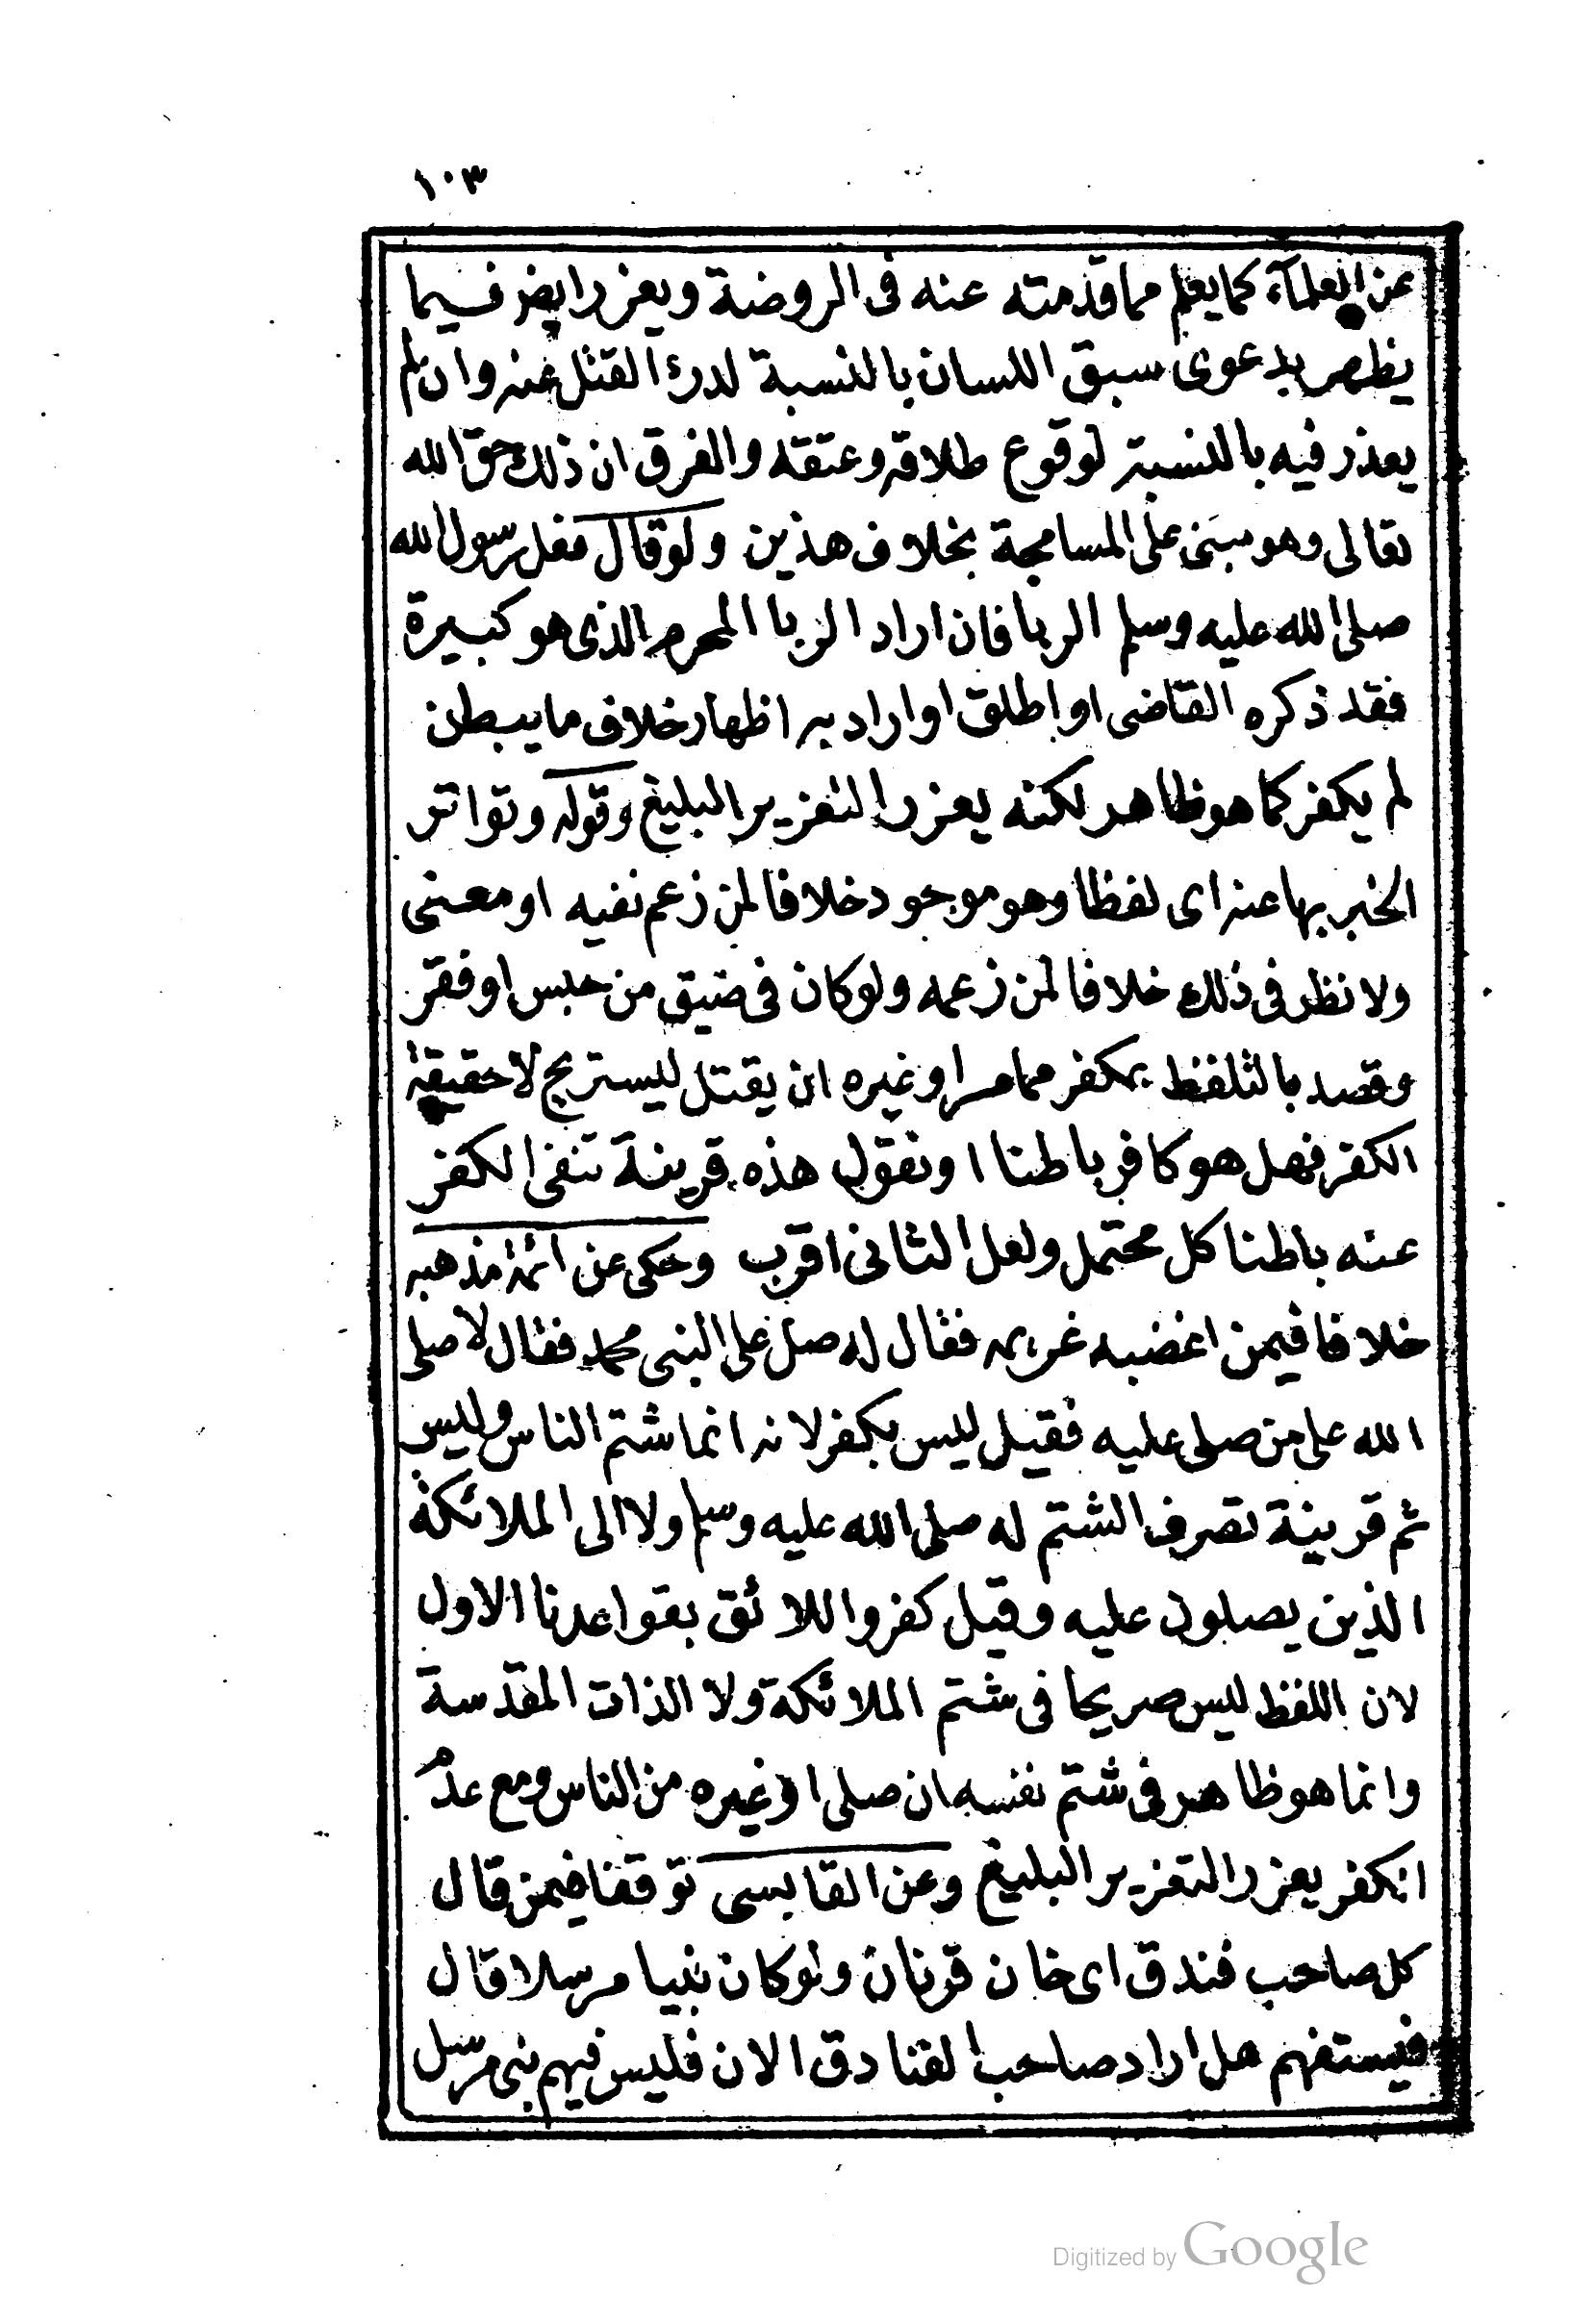 ١٠٣
عن العلمآء كما يعلم مما قدمته عنه فى الروضة ويعزر ايض فيما
يظهر بدعوى سبق اللسان بالنسبة لدرء القتل عنه وان لم
يعذر فيه بالنسبة لوقوع طلاقه وعتقه والفرق ان ذلك حق الله
تعالى وهو مبنى على المسامحة بخلاف هذين ولو قال فعل رسول الله
صلى الله عليه وسلم الربا فان اراد الربا المحرم الذى هو كبيرة
فقد ذكره القاضى او اطلق او اراد به اظهار خلاف ما يبطن
لم يكفر كما هو ظاهر لكنه يعزر التعزير البليغ وقوله وتواتر
الخبر بها عنه اى لفظا وهو موجود خلافا لمن زعم نفيه او معنى
ولا نظر فى ذلك خلافا لمن زعمه ولو كان فى ضيق من حبس او فقر
وقصد بالتلفظ بمكفر مما مر او غيره ان يقتل ليستريح لا حقيقة
الكفر فهل هو كافر باطنا او نقول هذه قرينة تنفى الكفر
عنه باطنا كل محتمل ولعل الثانى اقرب وحكى عن ائمة مذهبه
خلافا فيمن اغضبه غريمه فقال له صل على النبى محمد فقال لا صلى
الله على من صلى عليه فقيل ليس بكفر لانه انما شتم الناس وليس
ثم قرينة تصرف الشتم له صلى الله عليه وسلم ولا الى الملائكة
الذين يصلون عليه وقيل كفر واللائق بقواعدنا الاول
لان اللفظ ليس صريحا فى شتم الملائكة ولا الذات المقدسة
وانما هو ظاهر فى شتم نفسه ان صلى او غيره من الناس ومع عدم
الكفر يعزر التعزير البليغ وعن القابسى توقفا فيمن قال
كل صاحب فندق اى خان قرنان ولو كان نبيا مرسلا قال
فيستفهم هل اراد صاحب الفنادق الان فليس فيهم نبى مرسل
Digitized by Google